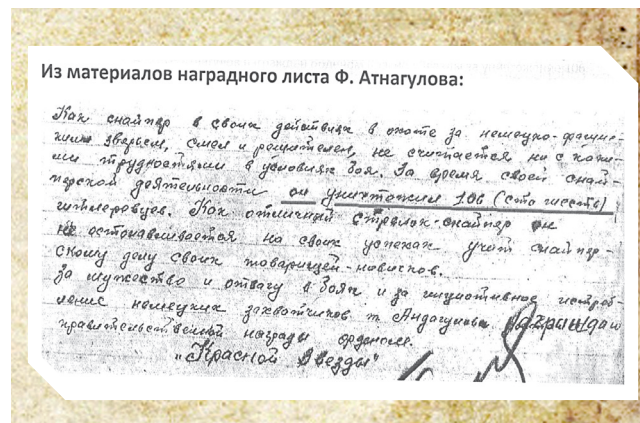 Из материалов наградного листа Ф. Атнагулова:
Как снайпер в своих действиях в охоте за немецко-фашис-
ким зверьем, смел и решителен, не считается ни с каки-
ми трудностями в условиях боя. За время своей снай-
перской деятельности он уничтожил 106 (сто шесть)
гитлеровцев. Как отличный стрелок-снайпер он
не останавливается на своих успехах учит снайпер-
скому делу своих товарищей-новичков.
За мужество и отвагу в боях и за инициативное истреб-
ление немецких захватчиков т.
правительственной награды орденом
"Красной Звезды"